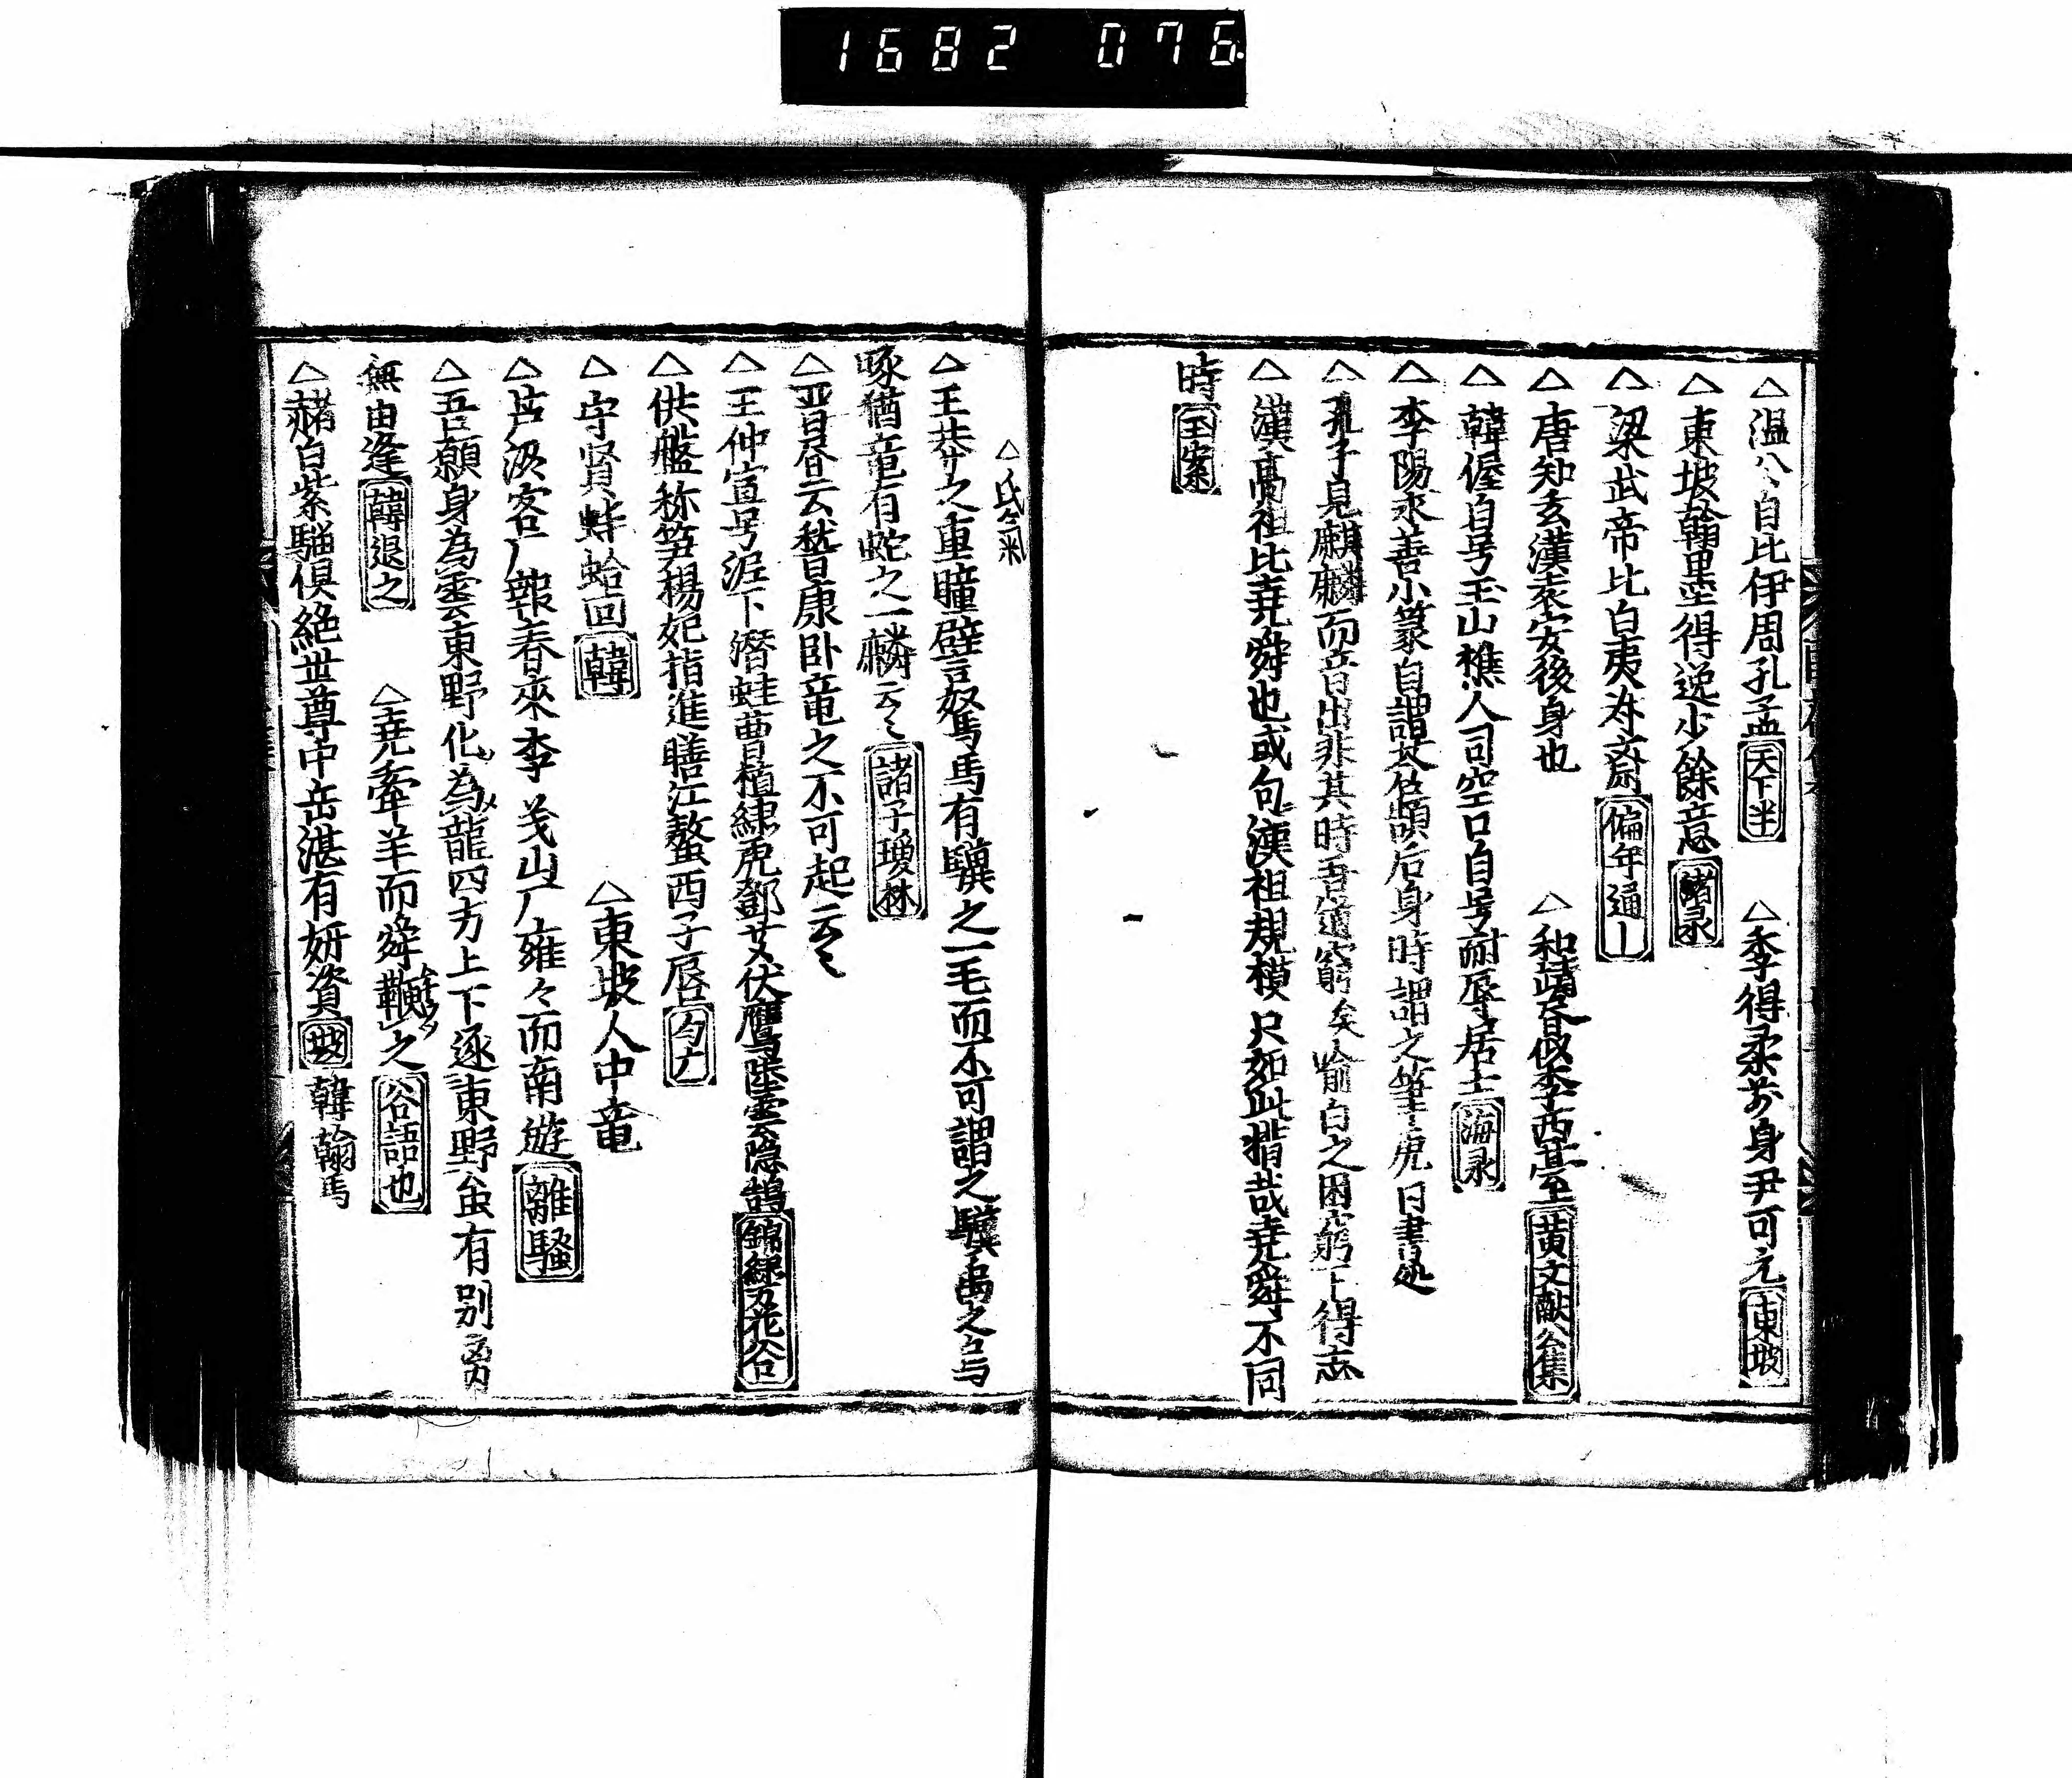 1682 076
△温公自比伊周孔孟 天下半 △季得柔前身尹可元 東坡
△東坡翰墨得逸少餘意 渚彔
△梁武帝比白夷為齋 偏年通
△唐知玄漢袁安後身也 △和靖者似李西臺 黄文献公集
△韓偓自号玉山樵人司空口自号耐辱居士 海彔
△李陽氷善小篆自謂蒼頡后身時謂之筆虎 日書処
△孔子見麒麟而音出非其時吾道窮矣喻白之困窮下得志
△漢高祖比堯舜也或句漢祖規模只如此指哉堯舜不同
時 玉案
△氏氣
△王莽之重瞳譬駑馬有驥之一毛而不可謂之驥禹之烏
啄猶竜有蛇之一麟云々 諸子瓊林
△晋昼云嵆康卧竜之不可起云々
△王仲宣号泥下潜蛙曹植綉虎鄧艾伏鷹陸雲隱鵠 錦綉万花谷
△供盤称笋楊妃指進膳江螯西子唇 勾
△守賢蚌蛤回 韓 △東坡人中竜
△芦汲客厂報春來李義山厂雍々而南遊 離騒
△吾願身為雲東野化為龍四方上下逐東野虽有別离
無由逢 韓退之 △堯牽羊而舜鞭之 谷語也
△赭白紫騮俱絶世尊中岳湛有妍資 坡 韓翰馬